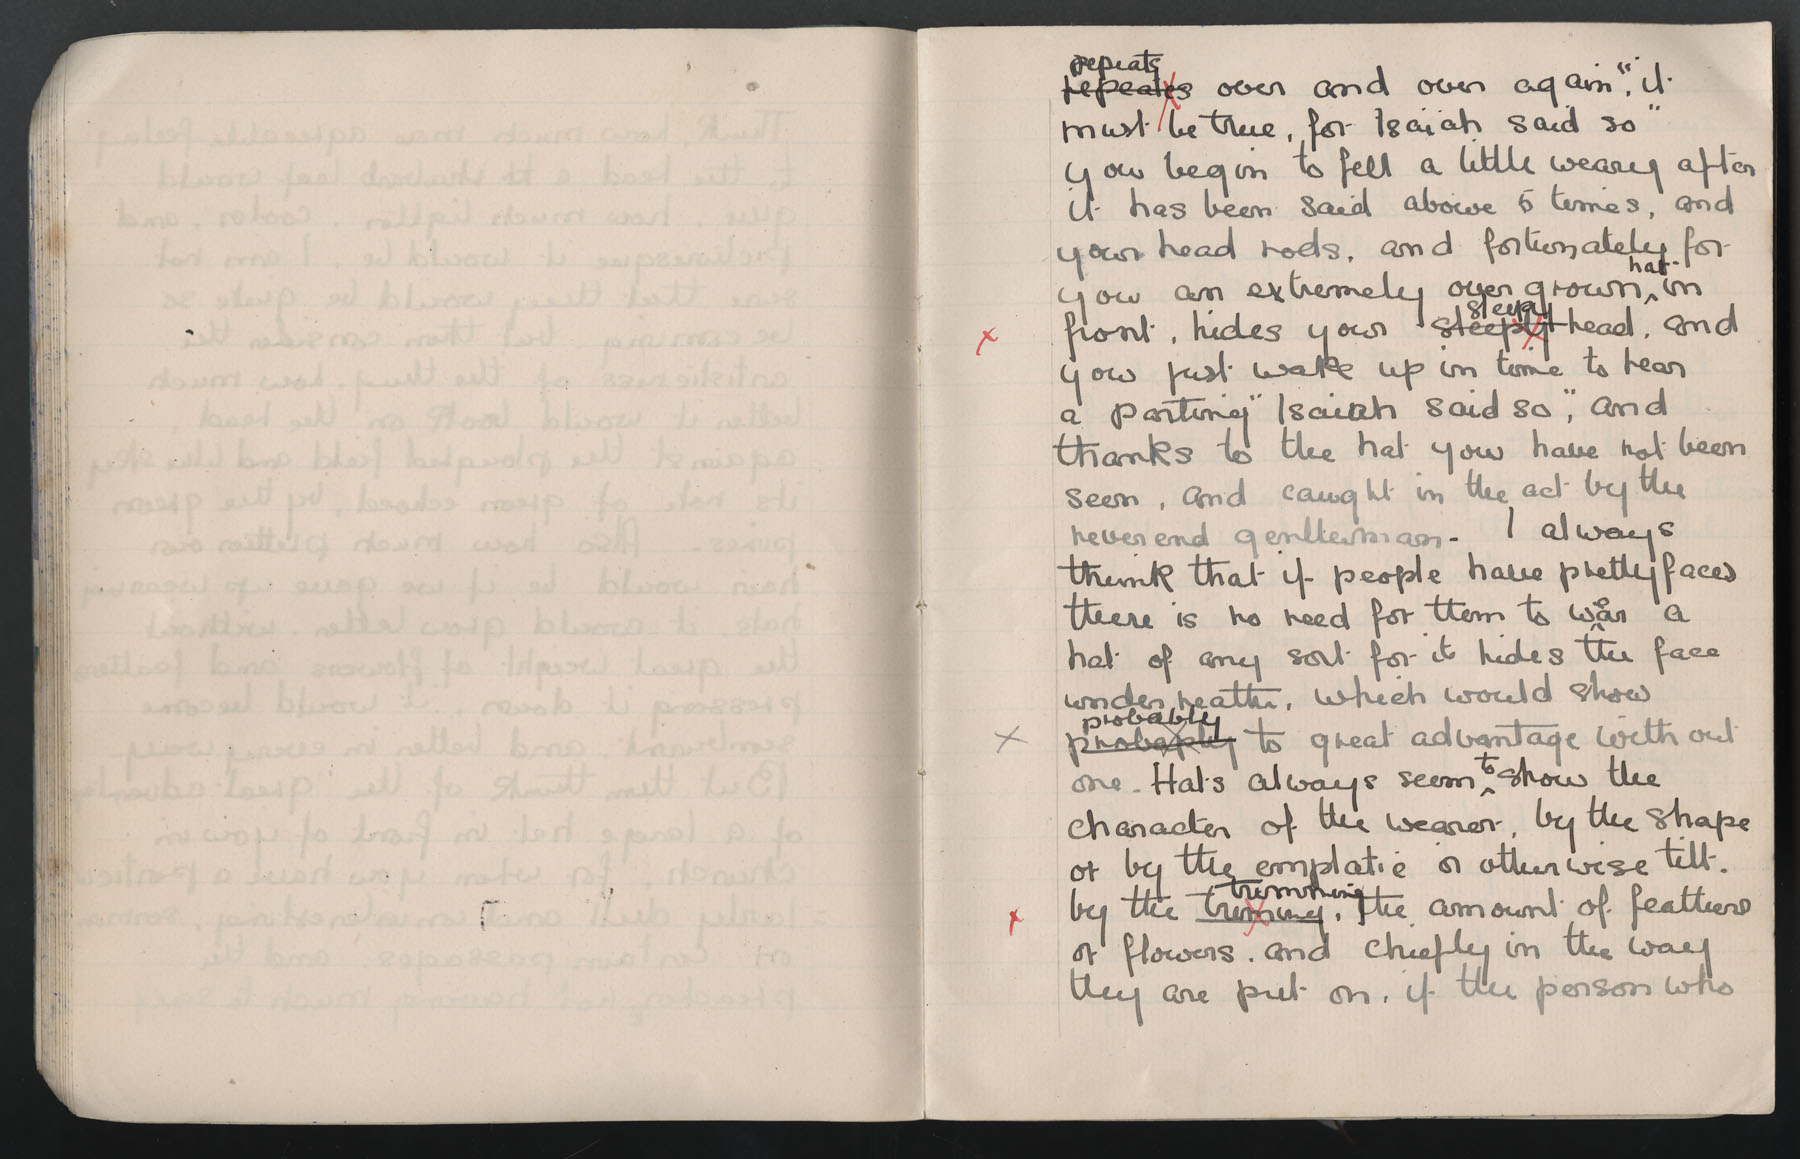 repeats
repeates over and over again, "it
must be true, for Isaiah said so"
you begin to fell a little weary after
it has been said above 6 times, and
your head nods, and fortunately for
you an extremely overgrown hat in
front, hides your steeply sleepy head, and
you just wake up in time to hear
a parting "Isaiah said so", and
thanks to the hat you have not been
seen, and caught in the act by the
reverend gentleman. I always
think that if people have pretty faces
there is no need for them to wear a
hat of any sort for it hides the face
underneath, which would show
probaply probably to great advantage without
one. Hats always seem to show the
character of the wearer, by the shape
or by the emplatic or otherwise tilt.
by the triming trimming, the amount of feathers
or flowers. and chiefly in the way
they are put on, if the person who